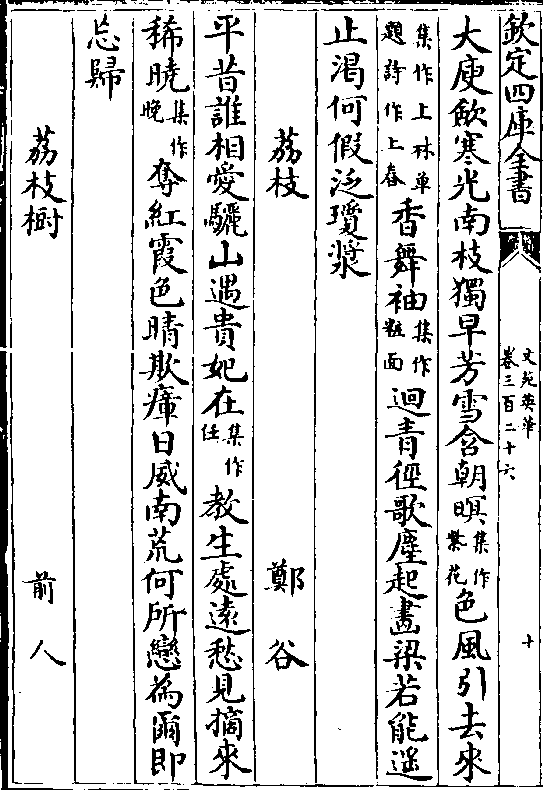 欽定四庫全書
文苑英華
卷三百二十六
十
大庾斂寒光南枝獨早芳雪含朝暝集作繁花色風引去來
集作上林單題詩作上春香舞袖集作粧面迴青徑歌塵起畫梁若能遥
止渴何假泛瓊漿
荔枝
鄭谷
平昔誰相愛驪山遇貴妃在集作任教生處遠愁見摘來
稀曉集作晚奪紅霞色晴欺瘴日威南荒何所戀為爾即
忘歸
荔枝樹
前人